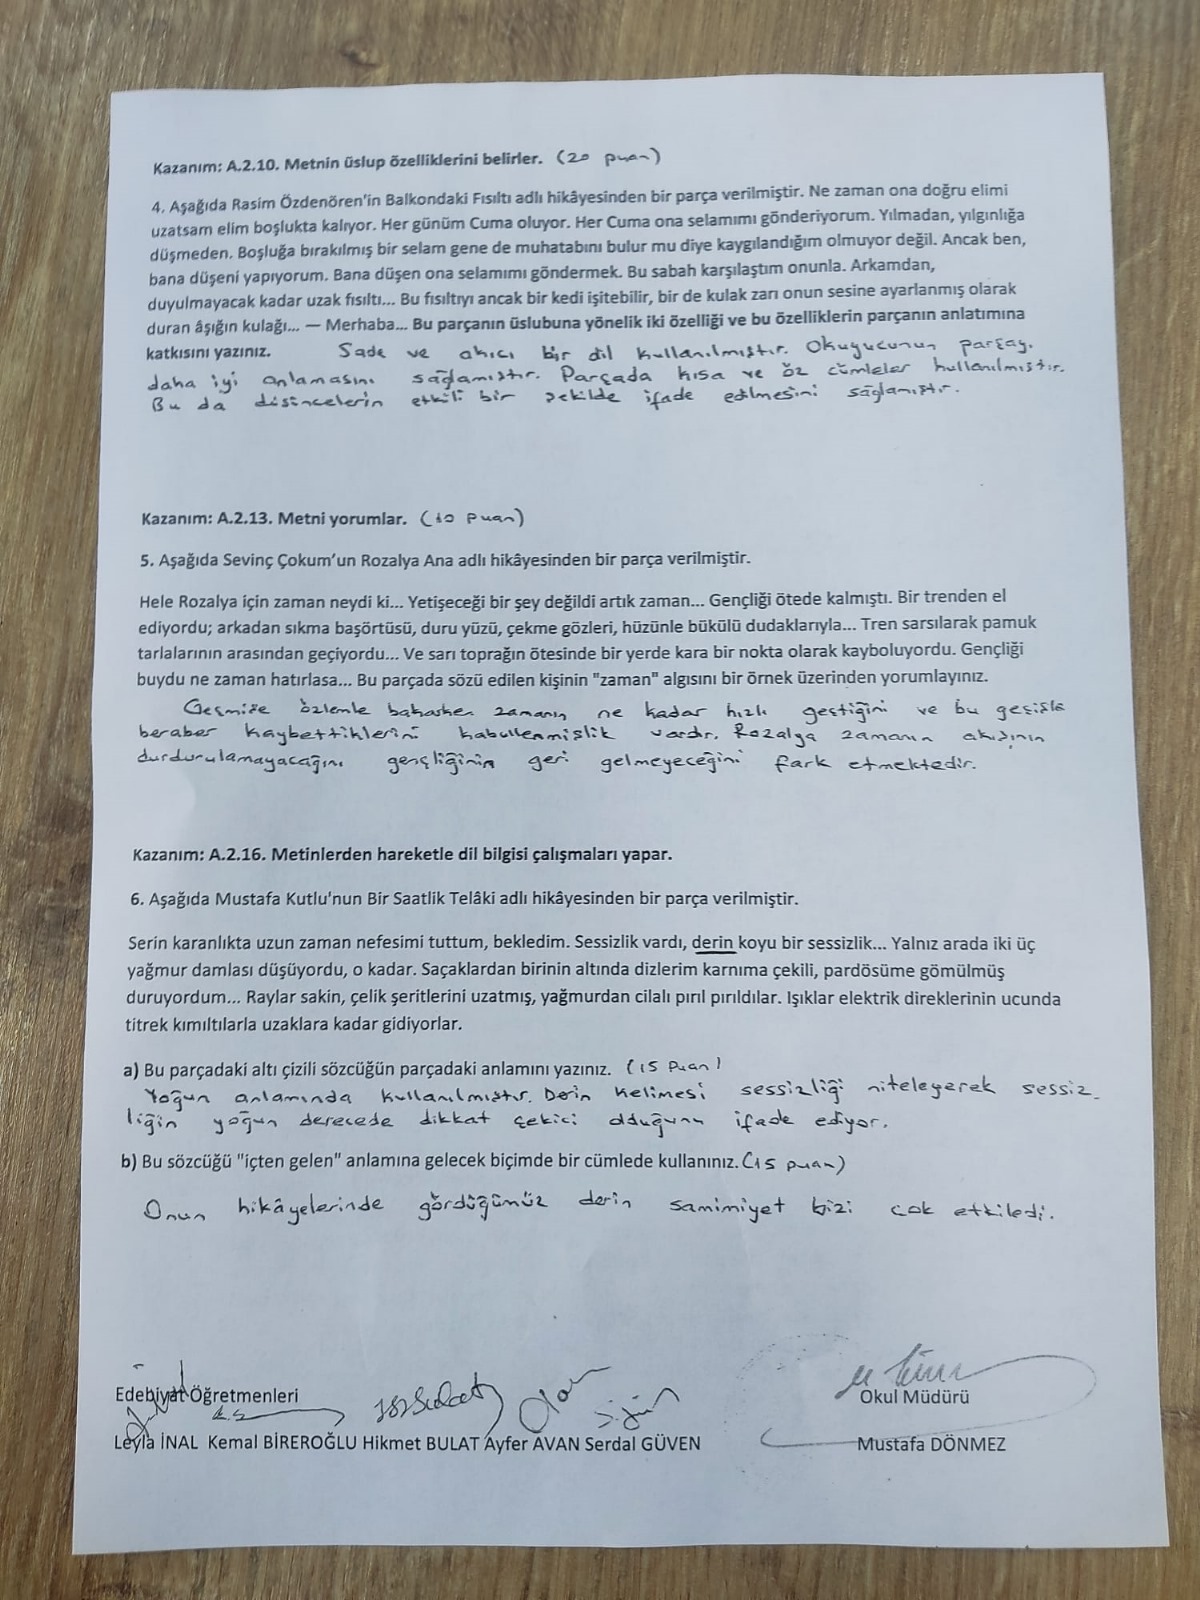 Kazanım: A.2.10. Metnin üslup özelliklerini belirler. (20 puan)
4. Aşağıda Rasim Özdenören'in Balkondaki Fısıltı adlı hikâyesinden bir parça verilmiştir. Ne zaman ona doğru elimi
uzatsam elim boşlukta kalıyor. Her günüm Cuma oluyor. Her Cuma ona selamımı gönderiyorum. Yılmadan, yılgınlığa
düşmeden. Boşluğa bırakılmış bir selam gene de muhatabını bulur mu diye kaygılandığım olmuyor değil. Ancak ben,
bana düşeni yapıyorum. Bana düşen ona selamımı göndermek. Bu sabah karşılaştım onunla. Arkamdan,
duyulmayacak kadar uzak fısıltı... Bu fısıltıyı ancak bir kedi işitebilir, bir de kulak zarı onun sesine ayarlanmış olarak
duran âşığın kulağı... — Merhaba... Bu parçanın üslubuna yönelik iki özelliği ve bu özelliklerin parçanın anlatımına
katkısını yazınız. Sade ve akıcı bir dil kullanılmıştır. Okuyucunun parçayı
daha iyi anlamasını sağlamıştır. Parçada kısa ve öz cümleler kullanılmıştır.
Bu da düşüncelerin etkili bir şekilde ifade edilmesini sağlamıştır.
Kazanım: A.2.13. Metni yorumlar. (10 puan)
5. Aşağıda Sevinç Çokum'un Rozalya Ana adlı hikâyesinden bir parça verilmiştir.
Hele Rozalya için zaman neydi ki... Yetişeceği bir şey değildi artık zaman... Gençliği ötede kalmıştı. Bir trenden el
ediyordu; arkadan sıkma başörtüsü, duru yüzü, çekme gözleri, hüzünle bükülü dudaklarıyla... Tren sarsılarak pamuk
tarlalarının arasından geçiyordu... Ve sarı toprağın ötesinde bir yerde kara bir nokta olarak kayboluyordu. Gençliği
buydu ne zaman hatırlasa... Bu parçada sözü edilen kişinin "zaman" algısını bir örnek üzerinden yorumlayınız.
Geçmişe özlemle bakarken zamanın ne kadar hızlı geçtiğini ve bu geçişle
beraber kaybettiklerini kabullenmişlik vardır. Rozalya zamanın akışının
durdurulamayacağını gençliğinin geri gelmeyeceğini fark etmektedir.
Kazanım: A.2.16. Metinlerden hareketle dil bilgisi çalışmaları yapar.
6. Aşağıda Mustafa Kutlu'nun Bir Saatlik Telâki adlı hikâyesinden bir parça verilmiştir.
Serin karanlıkta uzun zaman nefesimi tuttum, bekledim. Sessizlik vardı, derin koyu bir sessizlik... Yalnız arada iki üç
yağmur damlası düşüyordu, o kadar. Saçaklardan birinin altında dizlerim karnıma çekili, pardösüme gömülmüş
duruyordum... Raylar sakin, çelik şeritlerini uzatmış, yağmurdan cilalı pırıl pırıldılar. Işıklar elektrik direklerinin ucunda
titrek kımıltılarla uzaklara kadar gidiyorlar.
a) Bu parçadaki altı çizili sözcüğün parçadaki anlamını yazınız. (15 Puan)
Yoğun anlamında kullanılmıştır. Derin kelimesi sessizliği niteleyerek sessiz_
liğin yoğun derecede dikkat çekici olduğunu ifade ediyor.
b) Bu sözcüğü "içten gelen" anlamına gelecek biçimde bir cümlede kullanınız. (15 puan)
Onun hikâyelerinde gördüğümüz derin samimiyet bizi çok etkiledi.
Edebiyat Öğretmenleri
Okul Müdürü
Leyla İNAL Kemal BİREROĞLU Hikmet BULAT Ayfer AVAN Serdal GÜVEN
Mustafa DÖNMEZ